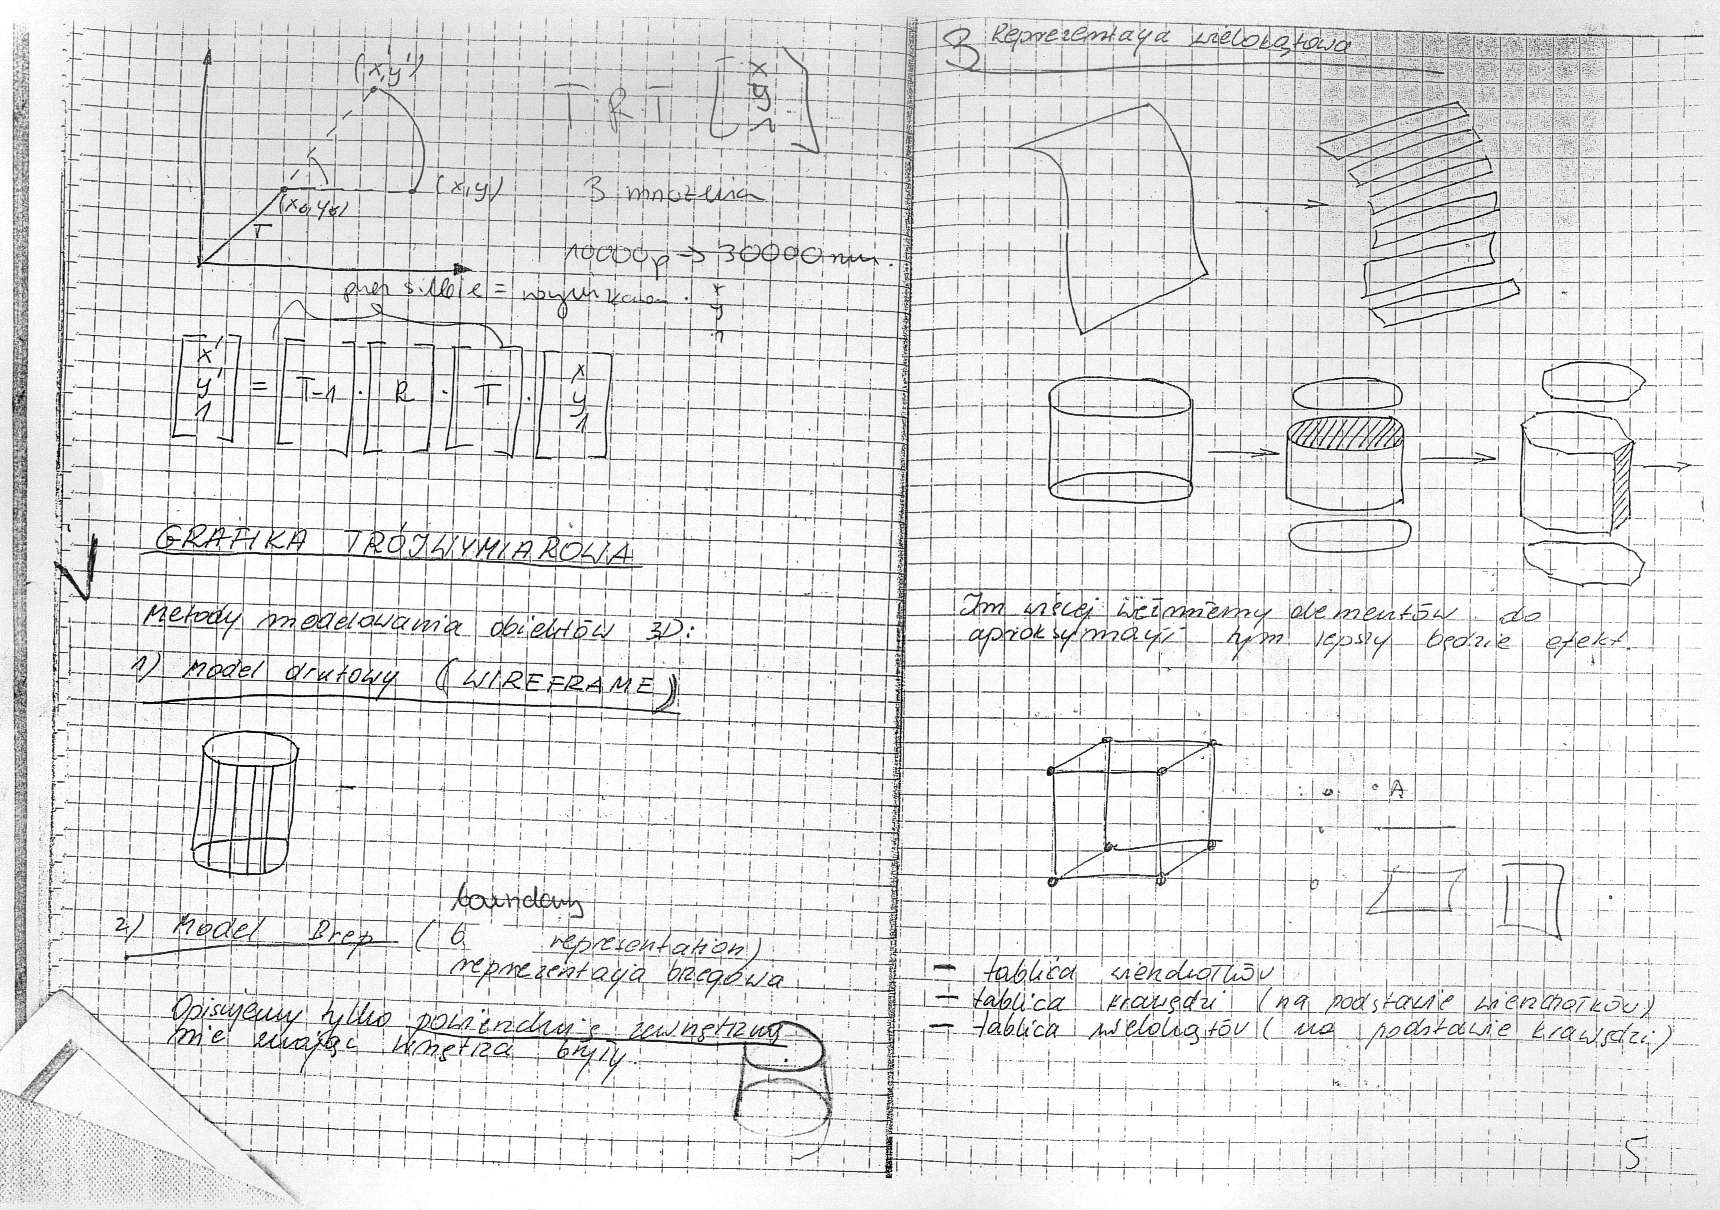 (x',y')
T R T [x y 1]
(x,y)
3 mnożenia
(x₀,y₀)
T
10000p → 30000 mn.
przez siebie = wymnożone · x y 1
[x' y' 1] = [T-1] · [R] · [T] · [x y 1]
GRAFIKA TRÓJWYMIAROWA
Metody modelowania obiektów 3D:
1) Model drutowy (WIREFRAME)
boundary
2) Model Brep (b. representation)
reprezentacja brzegowa
Opisujemy tylko powierzchnię zewnętrzną
nie znając wnętrza bryły.
3 Reprezentacja wielokątowa
Im więcej weźmiemy elementów do
aproksymacji tym lepszy będzie efekt.
A
- tablica wierzchołków
- tablica krawędzi (na podstawie wierzchołków)
- tablica wielokątów (na podstawie krawędzi)
5